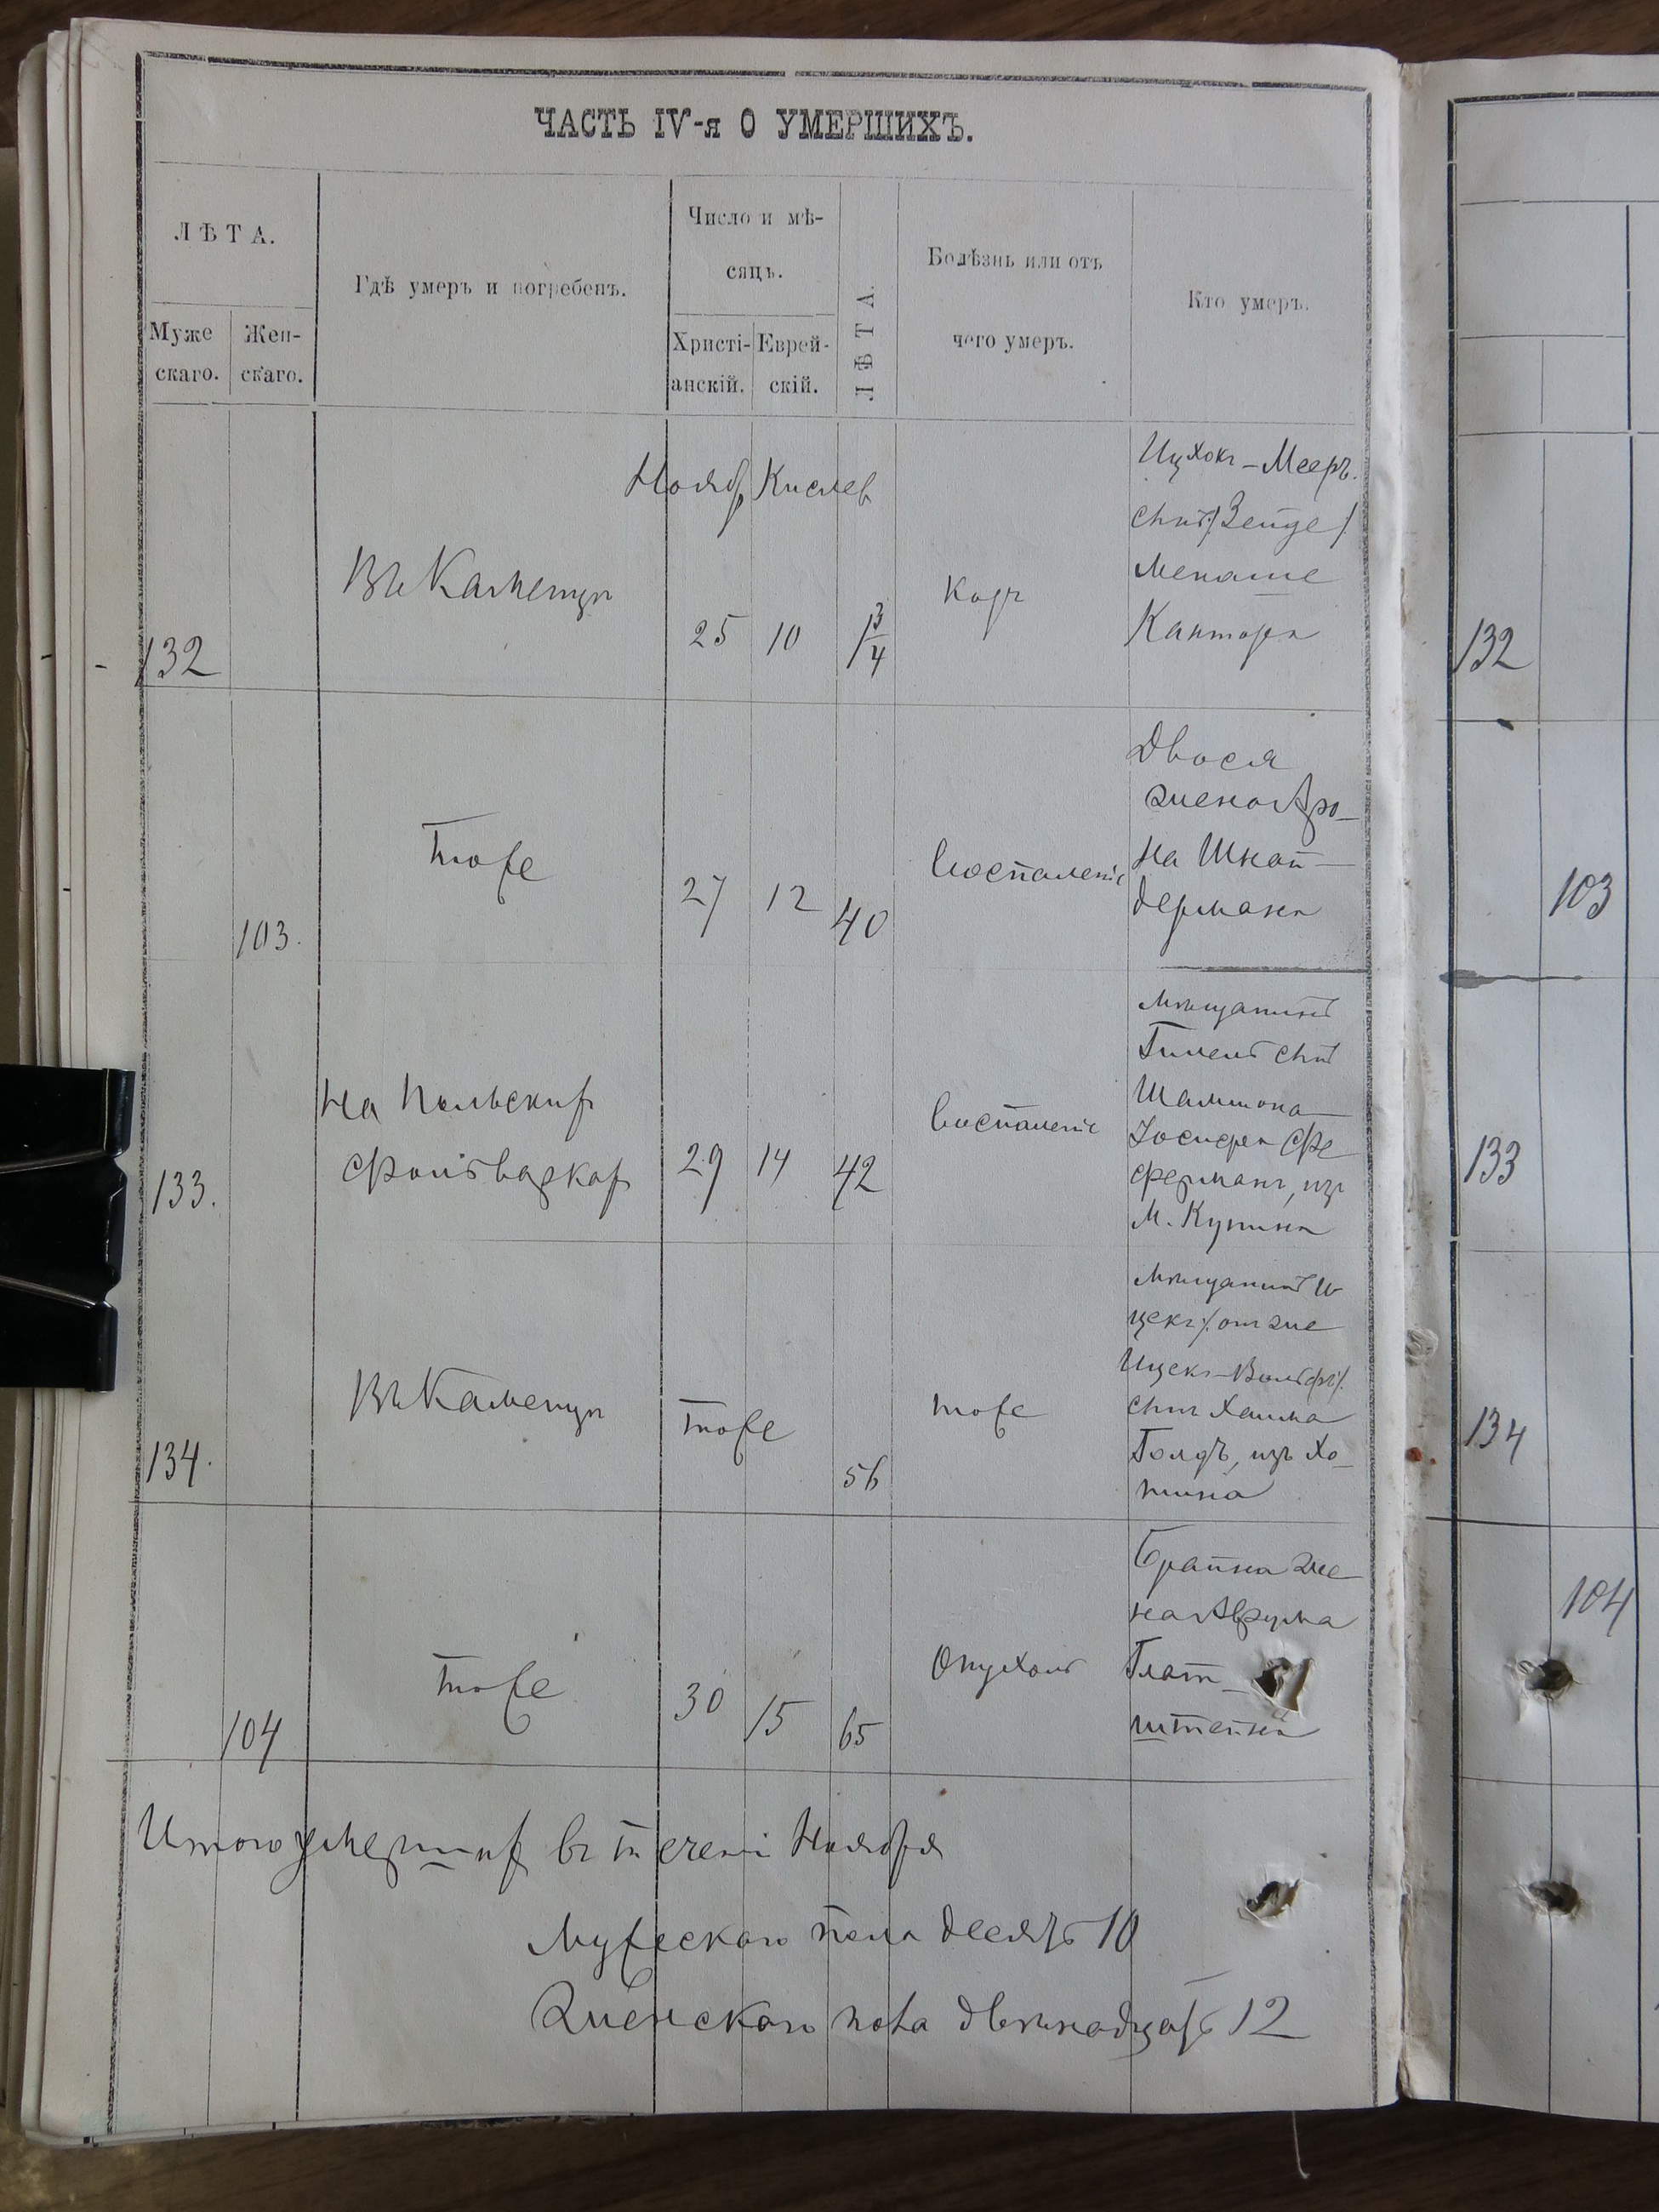 ЧАСТЬ IV-я О УМЕРШИХЪ.
ЛѢТА.
Муже
скаго.
Жен-
скаго.
Гдѣ умеръ и погребенъ.
Число и мѣ-
сяцъ.
Христі-
анскій.
Еврей-
скій.
ЛѢТА.
Болѣзнь или отъ
чего умеръ.
Кто умеръ.
132
Въ Каменцѣ
Ноябр Кислев
25 10 1 3/4
Корь
Ицхокъ-Мееръ
сынъ /Зейде/
Менаше
Кантора
103.
тоже
27 12 40
Воспаленіе
Двося
жена Аро-
на Шнай-
дермана
133.
На Польских
Фольварках
29 14 42
Воспаленіе
Мѣщанинъ
Гилель сынъ
Шамшона
Іосифа Фе
ферманъ, изъ
М. Купина
134.
Въ Каменцѣ
тоже
56
тоже
Мѣщанинъ И
цекъ /: онже
Ицекъ-Вольфъ :/
сынъ Хаима
Голдъ, изъ Хо-
тина
104
тоже
30 15 65
Опухоль
Брайна же
на Аврума
Глат-
штейна
Итого умерших въ течени Ноября
Мужескаго пола десять 10
Женскаго пола двѣнадцать 12
132
103
133
134
104